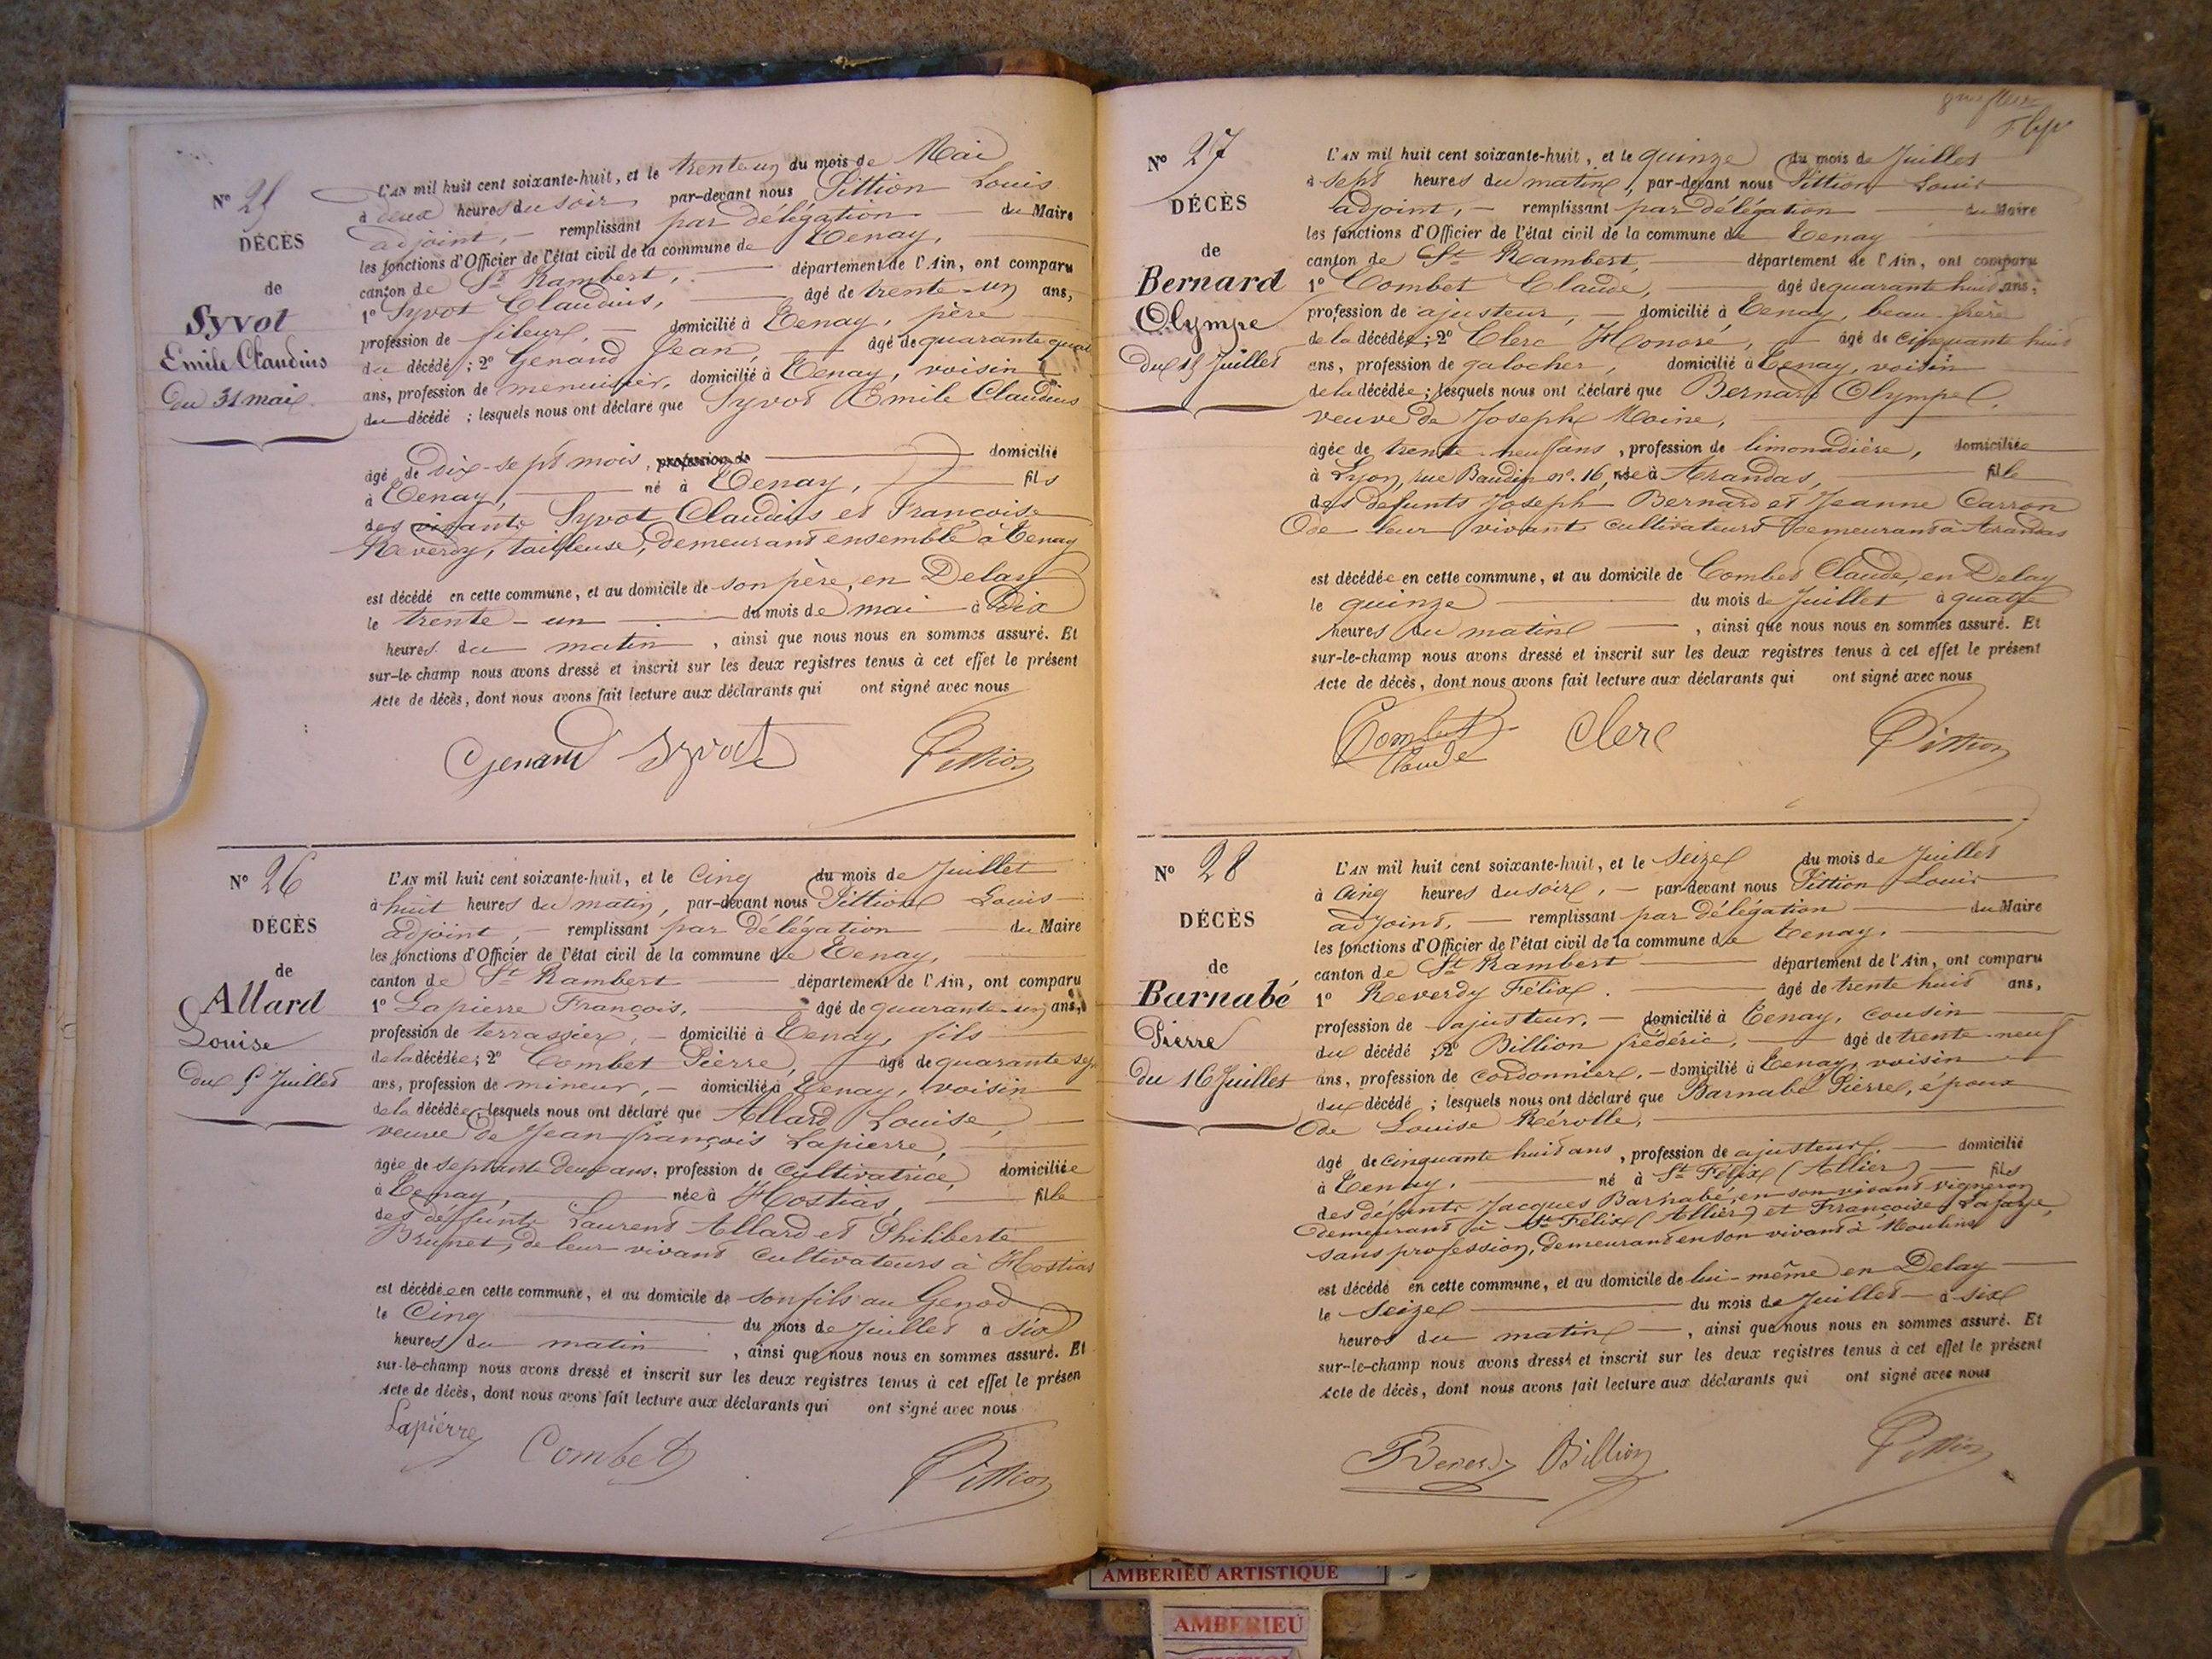 N° 25
DÉCÈS
de
Syvot
Emile Claudius
du 31 mai
L'AN mil huit cent soixante-huit, et le trente un du mois de Mai
à deux heures du soir, par-devant nous Pittion Louis
adjoint, remplissant par délégation du Maire
les fonctions d'Officier de l'état civil de la commune de Tenay,
canton de St Rambert, département de l'Ain, ont comparu
1° Syvot Claudius, âgé de trente-un ans,
profession de fileur, domicilié à Tenay, père
du décédé ; 2° Genand Jean, âgé de quarante quat
ans, profession de menuisier, domicilié à Tenay, voisin
du décédé ; lesquels nous ont déclaré que Syvot Emile Claudius
âgé de dix-sept mois, profession de domicilié
à Tenay, né à Tenay, fils
des vivants Syvot Claudius et Françoise
Reverdy, tailleuse, demeurant ensemble à Tenay
est décédé en cette commune, et au domicile de son père, en Delay
le trente-un du mois de mai à dix
heures du matin, ainsi que nous nous en sommes assuré. Et
sur-le-champ nous avons dressé et inscrit sur les deux registres tenus à cet effet le présent
Acte de décès, dont nous avons fait lecture aux déclarants qui ont signé avec nous
Genand Syvot Pittion
N° 26
DÉCÈS
de
Allard
Louise
du 5 Juillet
L'AN mil huit cent soixante-huit, et le cinq du mois de Juillet
à huit heures du matin, par-devant nous Pittion Louis
adjoint, remplissant par délégation du Maire
les fonctions d'Officier de l'état civil de la commune de Tenay,
canton de St Rambert département de l'Ain, ont comparu
1° Lapierre François, âgé de quarante-un ans,
profession de terrassier, domicilié à Tenay, fils
de la décédée ; 2° Combet Pierre, âgé de quarante sep
ans, profession de mineur, domicilié à Tenay, voisin
de la décédée ; lesquels nous ont déclaré que Allard Louise,
veuve de Jean François Lapierre,
âgée de septante deux ans, profession de cultivatrice, domiciliée
à Tenay, née à Hostias, fille
des deffunts Laurent Allard et Philiberte
Brunet, de leur vivant cultivateurs à Hostias
est décédée en cette commune, et au domicile de son fils au Genod
le cinq du mois de Juillet à six
heures du matin, ainsi que nous nous en sommes assuré. Et
sur-le-champ nous avons dressé et inscrit sur les deux registres tenus à cet effet le présen
Acte de décès, dont nous avons fait lecture aux déclarants qui ont signé avec nous
Lapierre Combet Pittion
N° 27
DÉCÈS
de
Bernard
Olympe
du 15 Juillet
L'AN mil huit cent soixante-huit, et le quinze du mois de Juillet
à sept heures du matin, par-devant nous Pittion Louis
adjoint, remplissant par délégation du Maire
les fonctions d'Officier de l'état civil de la commune de Tenay
canton de St Rambert, département de l'Ain, ont comparu
1° Combet Claude, âgé de quarante huit ans,
profession de ajusteur, domicilié à Tenay, beau-frère
de la décédée ; 2° Clerc Honoré, âgé de cinquante huit
ans, profession de galocher, domicilié à Tenay, voisin
de la décédée ; lesquels nous ont déclaré que Bernard Olympe,
veuve de Joseph Moine,
âgée de trente-neuf ans, profession de limonadière, domiciliée
à Lyon, rue Baudin n°. 16, née à Arandas, fille
des défunts Joseph Bernard et Jeanne Carron
de leur vivant cultivateurs demeurant à Arandas
est décédée en cette commune, et au domicile de Combet Claude, en Delay
le quinze du mois de Juillet à quatre
heures du matin, ainsi que nous nous en sommes assuré. Et
sur-le-champ nous avons dressé et inscrit sur les deux registres tenus à cet effet le présent
Acte de décès, dont nous avons fait lecture aux déclarants qui ont signé avec nous
Combet Claude Clerc Pittion
N° 28
DÉCÈS
de
Barnabé
Pierre
du 16 Juillet
L'AN mil huit cent soixante-huit, et le seize du mois de Juillet
à cinq heures du soir, par-devant nous Pittion Louis
adjoint, remplissant par délégation du Maire
les fonctions d'Officier de l'état civil de la commune de Tenay,
canton de St Rambert département de l'Ain, ont comparu
1° Reverdy Félix, âgé de trente huit ans,
profession de ajusteur, domicilié à Tenay, cousin
du décédé ; 2° Billion frédéric, âgé de trente-neuf
ans, profession de cordonnier, domicilié à Tenay, voisin
du décédé ; lesquels nous ont déclaré que Barnabé Pierre, époux
de Louise Rérolle,
âgé de cinquante huit ans, profession de ajusteur, domicilié
à Tenay, né à St Félix (Allier) fils
des défunts Jacques Barnabé, en son vivant vigneron
demeurant à St Félix (Allier) et Françoise Lafarge,
sans profession, demeurant en son vivant à Moulins
est décédé en cette commune, et au domicile de lui-même en Delay
le seize du mois de Juillet à six
heures du matin, ainsi que nous nous en sommes assuré. Et
sur-le-champ nous avons dressé et inscrit sur les deux registres tenus à cet effet le présent
Acte de décès, dont nous avons fait lecture aux déclarants qui ont signé avec nous
Billion Pittion
AMBERIEU ARTISTIQUE
AMBERIEU